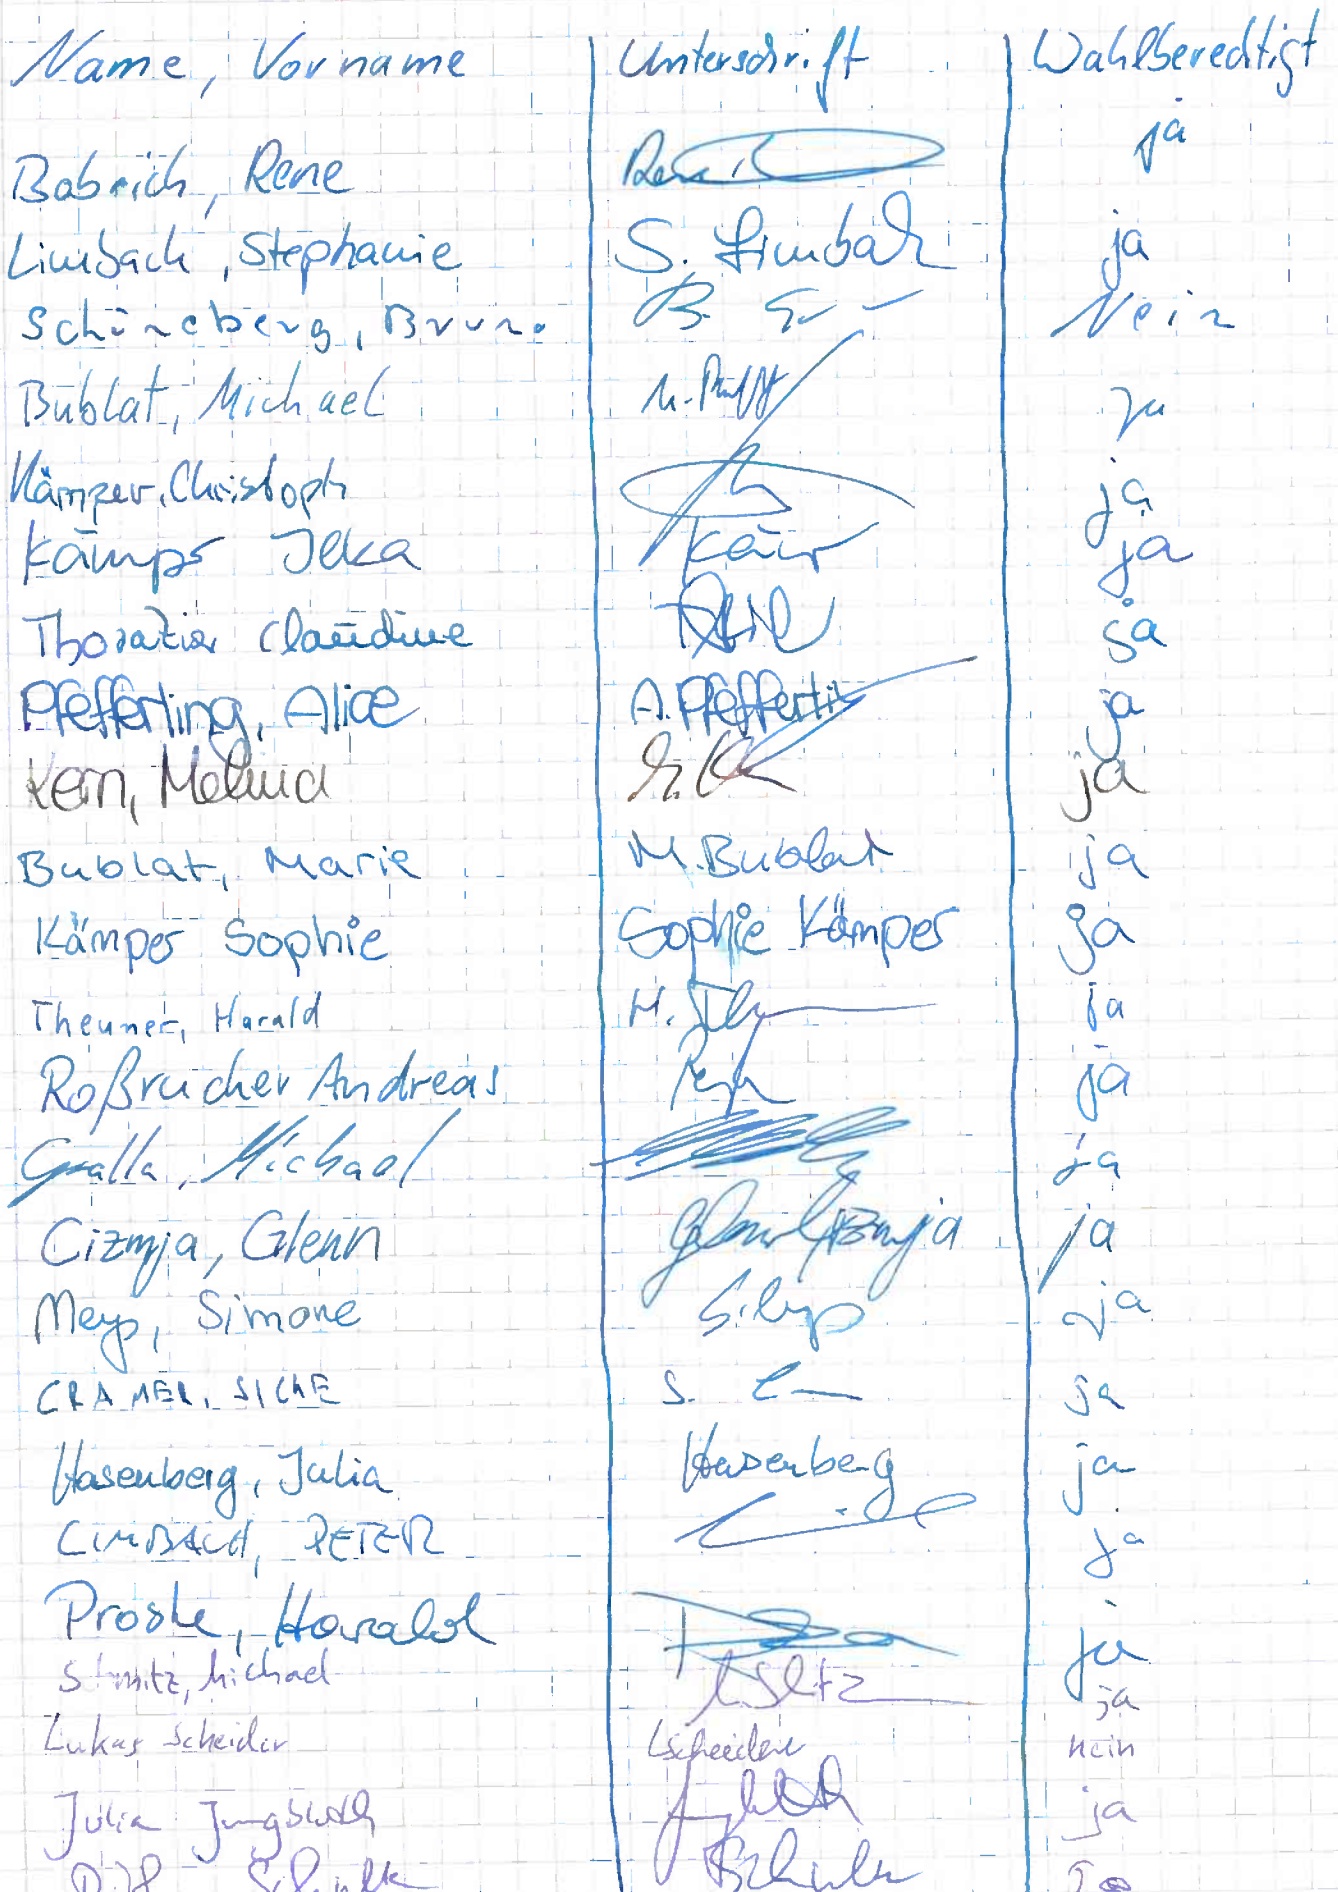 Name, Vorname Unterschrift Wahlberechtigt
Babrich, Rene ja
Limbach, Stephanie S. Limbach ja
Schöneberg, Bruno B. Nein
Bublat, Michael ja
Kämper, Christoph ja
Kämper Ilka ja
Claudine ja
Pfefferling, Alice A. Pfefferling ja
Kern, ja
Bublat, Marie M. Bublat ja
Kämper Sophie Sophie Kämper ja
Theuner, Harald H. ja
Roßrucker Andreas ja
Galla, Michael ja
Cizmja, Glenn Glenn Cizmja ja
Meys, Simone ja
CRAMER, SILKE S. ja
Hasenberg, Julia Hasenberg ja
LIMBACH, PETER ja
Proske, Harald ja
Schmitz, Michael ja
Lukas Scheider LScheider nein
Julia Jungbluth ja